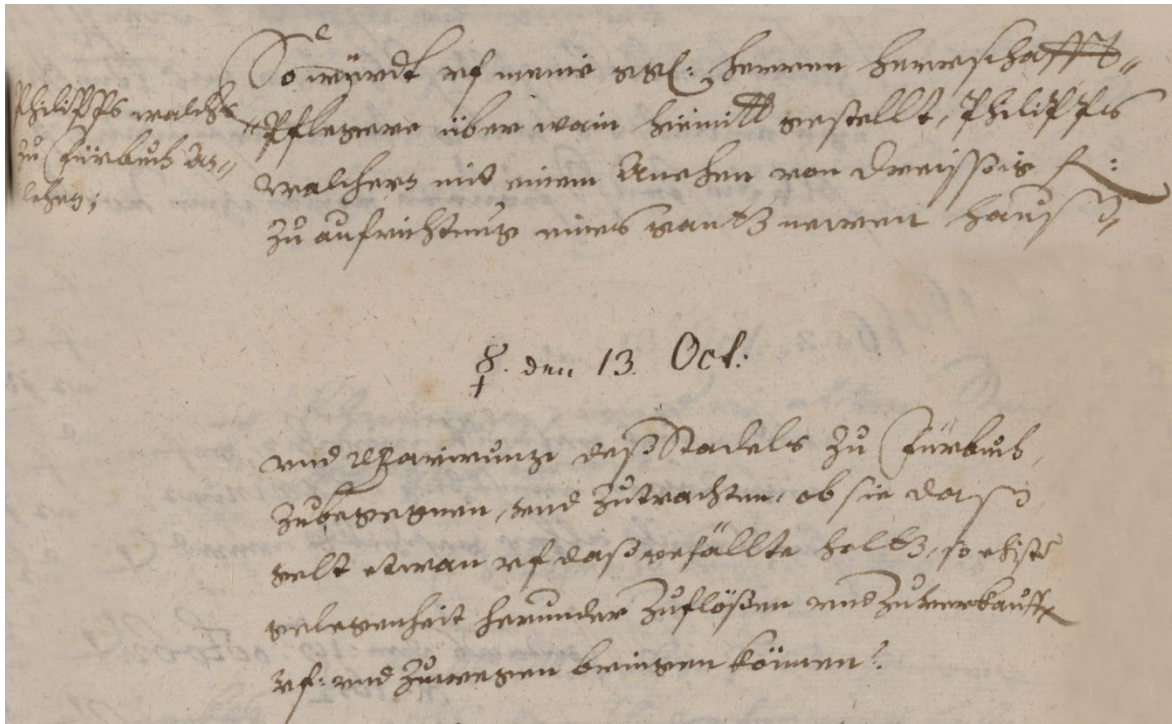 Philipps walchs
zu Fürbuch An-
lehen;
So würdt uf meine ggl: Herren Herrschaffts-
Pflegere über wain hiemitt gestellt, Philipps
walchers mit einem Anehen von dreissig f:
zu aufrichtung eines gantz newen Hauß,
☿. den 13. Oct:
und reparirung deß Stadels zu Fürbuch,
zubegegnen, und zutrachten, ob sie
gelt etwan uf daß gefällte holtz, so
gelegenheit herunder zuflößen und zuverkauffen
uf: und zuwegen bringen können?